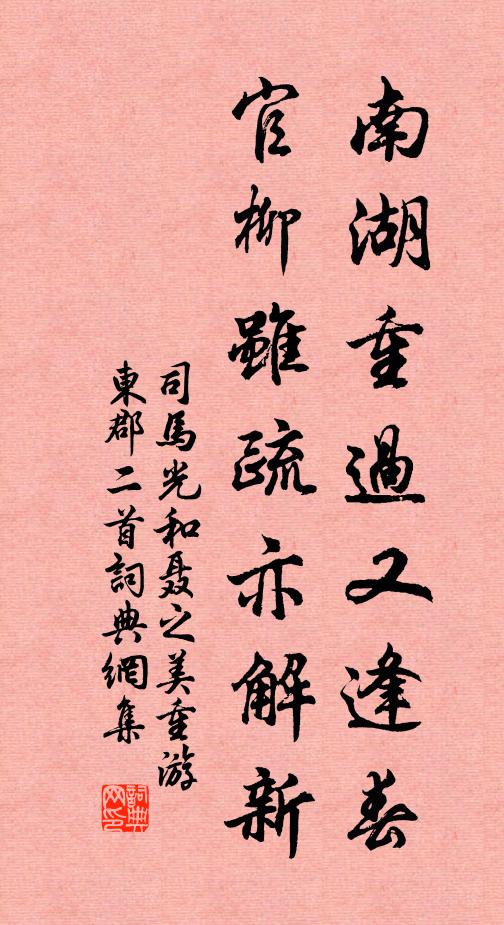 南湖重過又逢春
官柳雖疏亦解新
司馬光和聂之美重游
東郡二首詞典網集
詞典网印